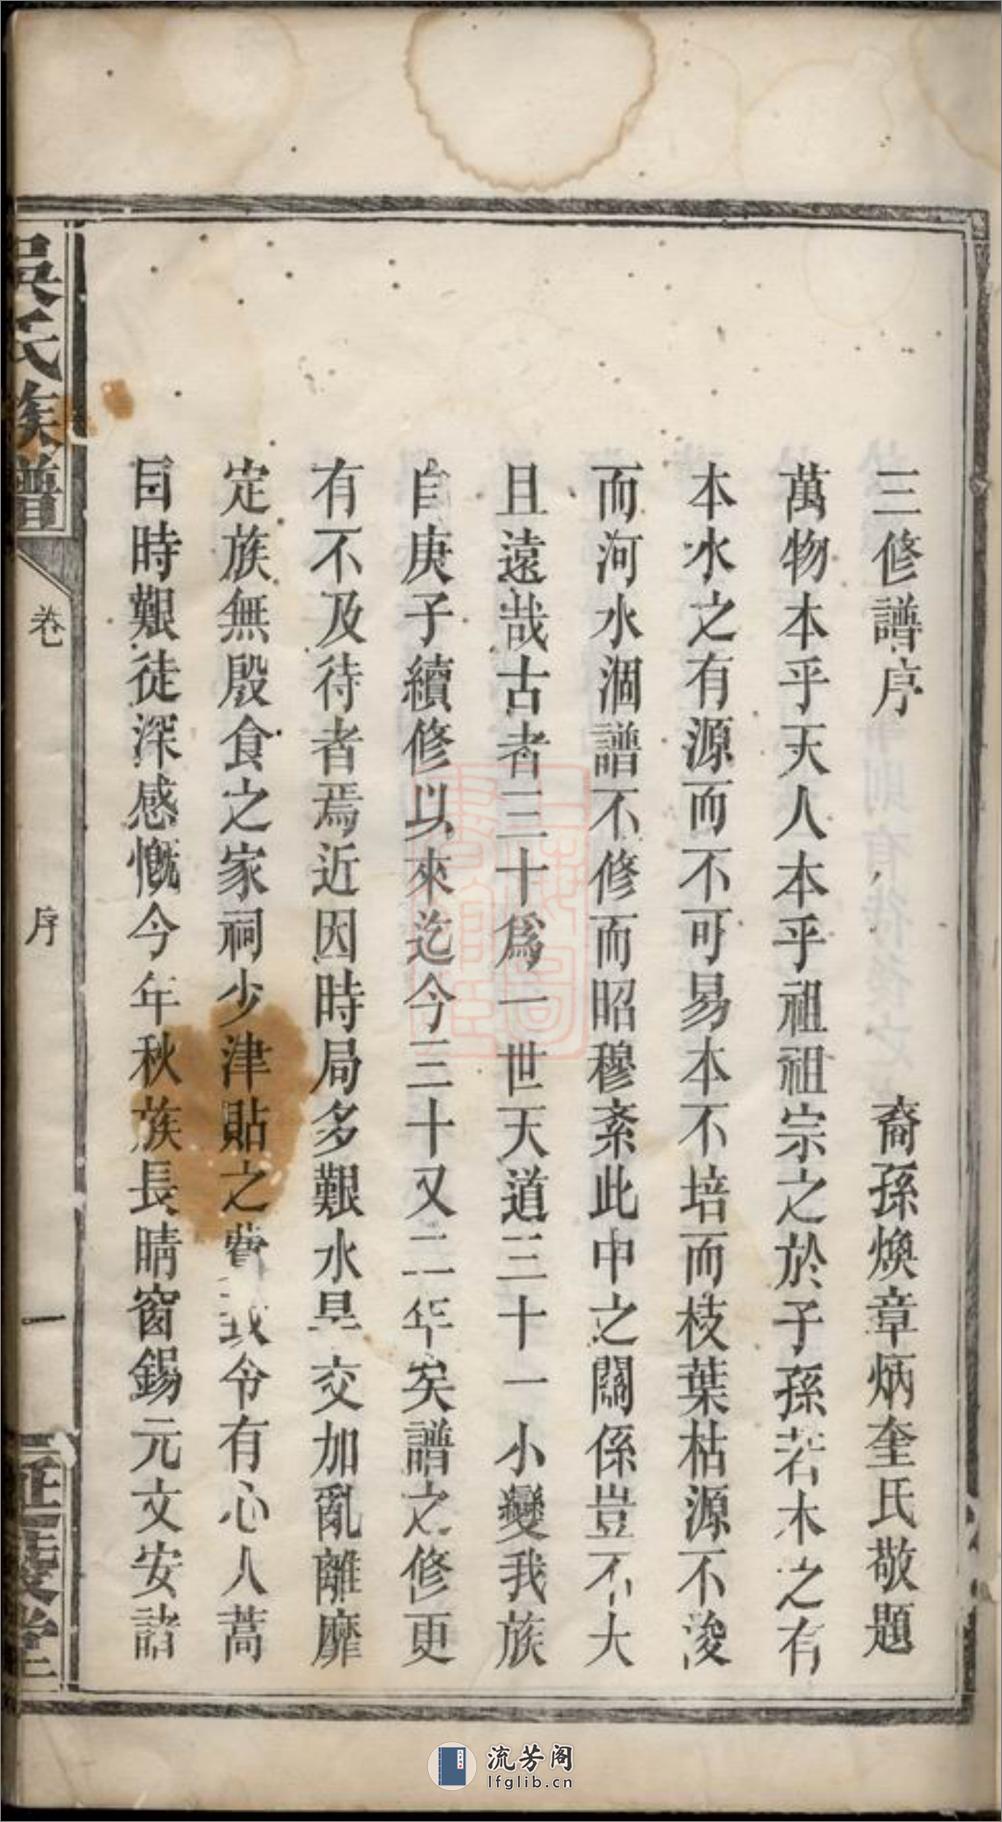 三修譜序
裔孫煥章炳奎氏敬題
萬物本乎天人本乎祖祖宗之於子孫若木之有
本水之有源而不可易本不培而枝葉枯源不浚
而河水涸譜不修而昭穆紊此中之關係豈不大
且遠哉古者三十爲一世天道三十一小變我族
自庚子續修以來迄今三十又二年矣譜之修更
有不及待者焉近因時局多艱水旱交加亂離靡
定族無殷食之家祠少津貼之費致令有心人蒿
目時艱徒深感慨今年秋族長晴窗錫元文安諸
吳氏族譜
卷
序
一
延陵堂
流芳阁
lfglib.cn